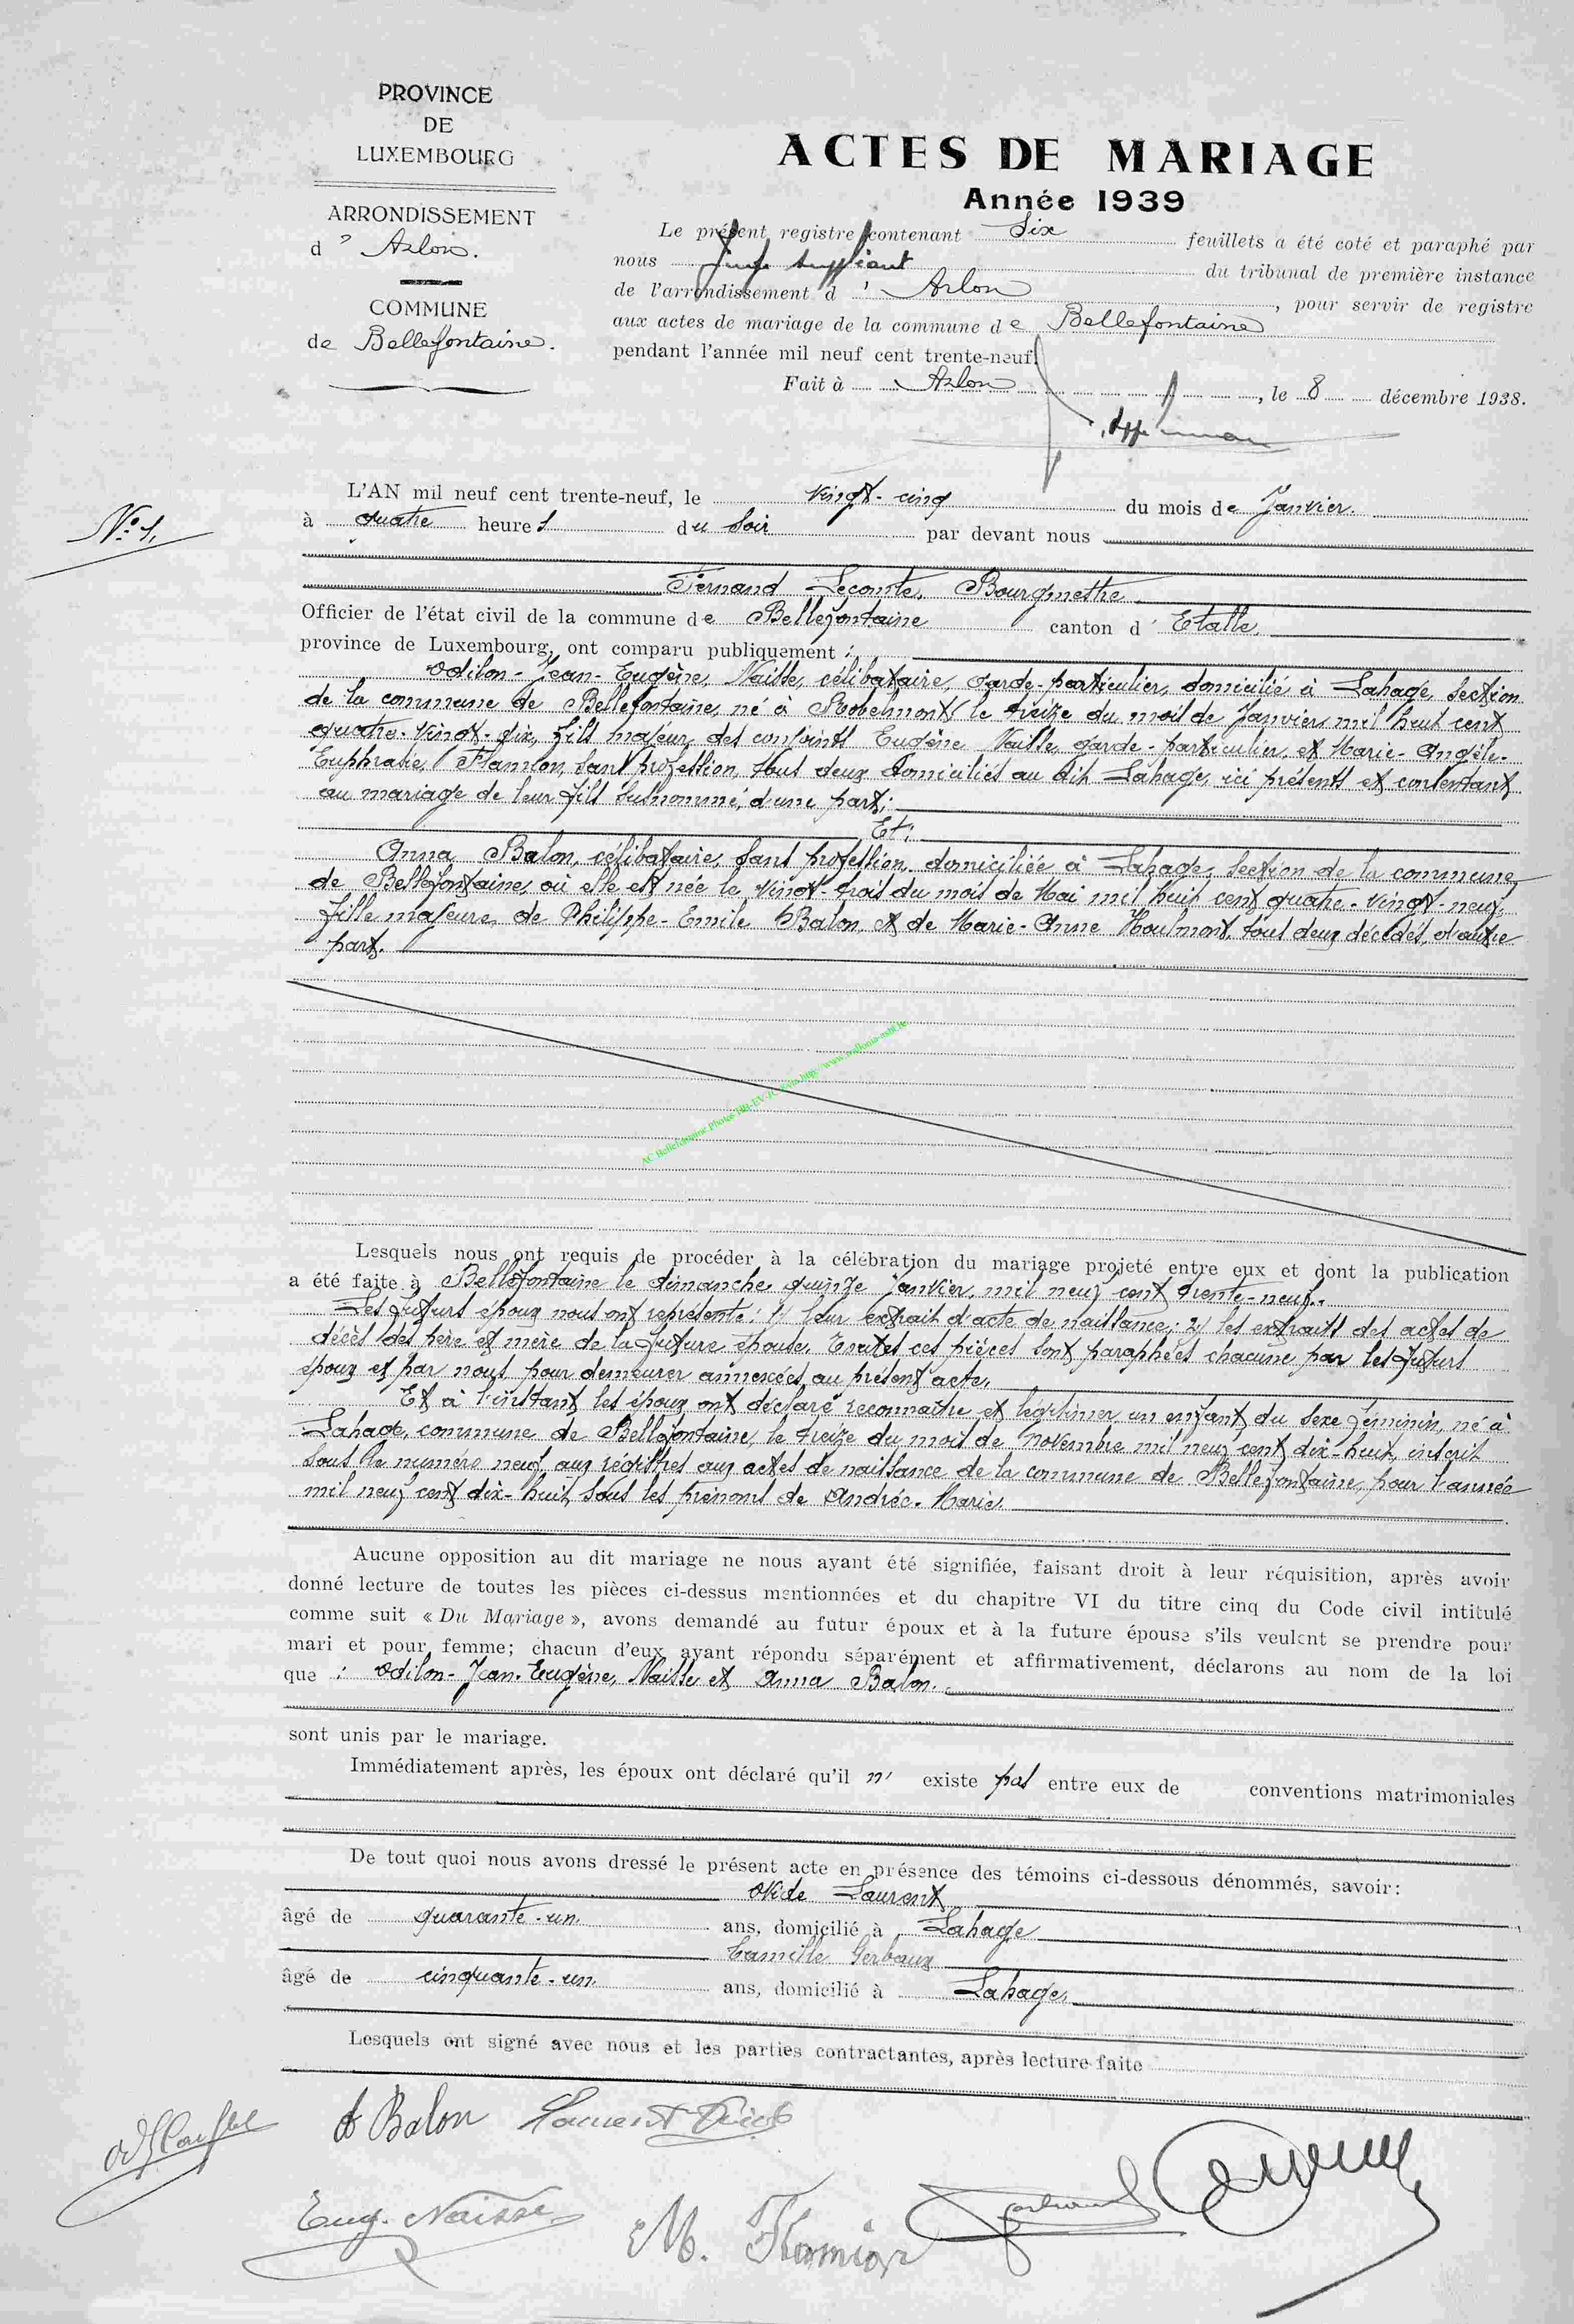 PROVINCE
DE
LUXEMBOURG
ARRONDISSEMENT
d' Arlon.
COMMUNE
de Bellefontaine.
ACTES DE MARIAGE
Année 1939
Le présent registre contenant Six feuillets a été coté et paraphé par
nous Juge suppléant du tribunal de première instance
de l'arrondissement d' Arlon, pour servir de registre
aux actes de mariage de la commune de Bellefontaine
pendant l'année mil neuf cent trente-neuf.
Fait à Arlon, le 8 décembre 1938.
N° 1.
L'AN mil neuf cent trente-neuf, le vingt-cinq du mois de Janvier.
à quatre heures du soir par devant nous
Fernand Lecomte, Bourgmestre
Officier de l'état civil de la commune de Bellefontaine canton d' Etalle,
province de Luxembourg, ont comparu publiquement :
Odilon-Jean-Eugène, Naisse, célibataire, garde-particulier, domicilié à Lahage, section
de la commune de Bellefontaine, né à Robelmont, le treize du mois de Janvier mil huit cent
quatre-vingt-dix, fils majeur, des conjoints Eugène Naisse, garde-particulier, et Marie-Angèle-
Euphrasie, Flamion, sans profession, tous deux domiciliés au dit Lahage, ici présents et consentant
au mariage de leur fils susnommé, d'une part;
Et;
Anna Balon, célibataire, sans profession, domiciliée à Lahage, section de la commune
de Bellefontaine, où elle est née le vingt-trois du mois de Mai mil huit cent quatre-vingt-neuf,
fille majeure, de Philippe-Emile Balon, et de Marie-Anne Houlmont, tous deux décédés, d'autre
part.
AC Bellefontaine Photos
Lesquels nous ont requis de procéder à la célébration du mariage projeté entre eux et dont la publication
a été faite à Bellefontaine le dimanche quinze Janvier mil neuf cent trente-neuf.
Les futurs époux nous ont représenté: 1) leur extrait d'acte de naissance; 2) les extraits des actes de
décès des père et mère de la future épouse. Toutes ces pièces sont paraphées chacune par les futurs
époux et par nous pour demeurer annexées au présent acte.
Et à l'instant les époux ont déclaré reconnaître et légitimer un enfant du sexe féminin, né à
Lahage, commune de Bellefontaine, le treize du mois de novembre mil neuf cent dix-huit, inscrit
sous le numéro neuf aux registres aux actes de naissance de la commune de Bellefontaine, pour l'année
mil neuf cent dix-huit, sous les prénoms de Andrée-Marie.
Aucune opposition au dit mariage ne nous ayant été signifiée, faisant droit à leur réquisition, après avoir
donné lecture de toutes les pièces ci-dessus mentionnées et du chapitre VI du titre cinq du Code civil intitulé
comme suit « Du Mariage », avons demandé au futur époux et à la future épouse s'ils veulent se prendre pour
mari et pour femme; chacun d'eux ayant répondu séparément et affirmativement, déclarons au nom de la loi
que : Odilon-Jean-Eugène, Naisse et Anna Balon.
sont unis par le mariage.
Immédiatement après, les époux ont déclaré qu'il n' existe pas entre eux de conventions matrimoniales
De tout quoi nous avons dressé le présent acte en présence des témoins ci-dessous dénommés, savoir:
Ovide Laurent
âgé de quarante-un ans, domicilié à Lahage
Camille Gerbaux
âgé de cinquante-un ans, domicilié à Lahage,
Lesquels ont signé avec nous et les parties contractantes, après lecture faite
A Balon Laurent Ovide
Eug. Naisse M. Flamion